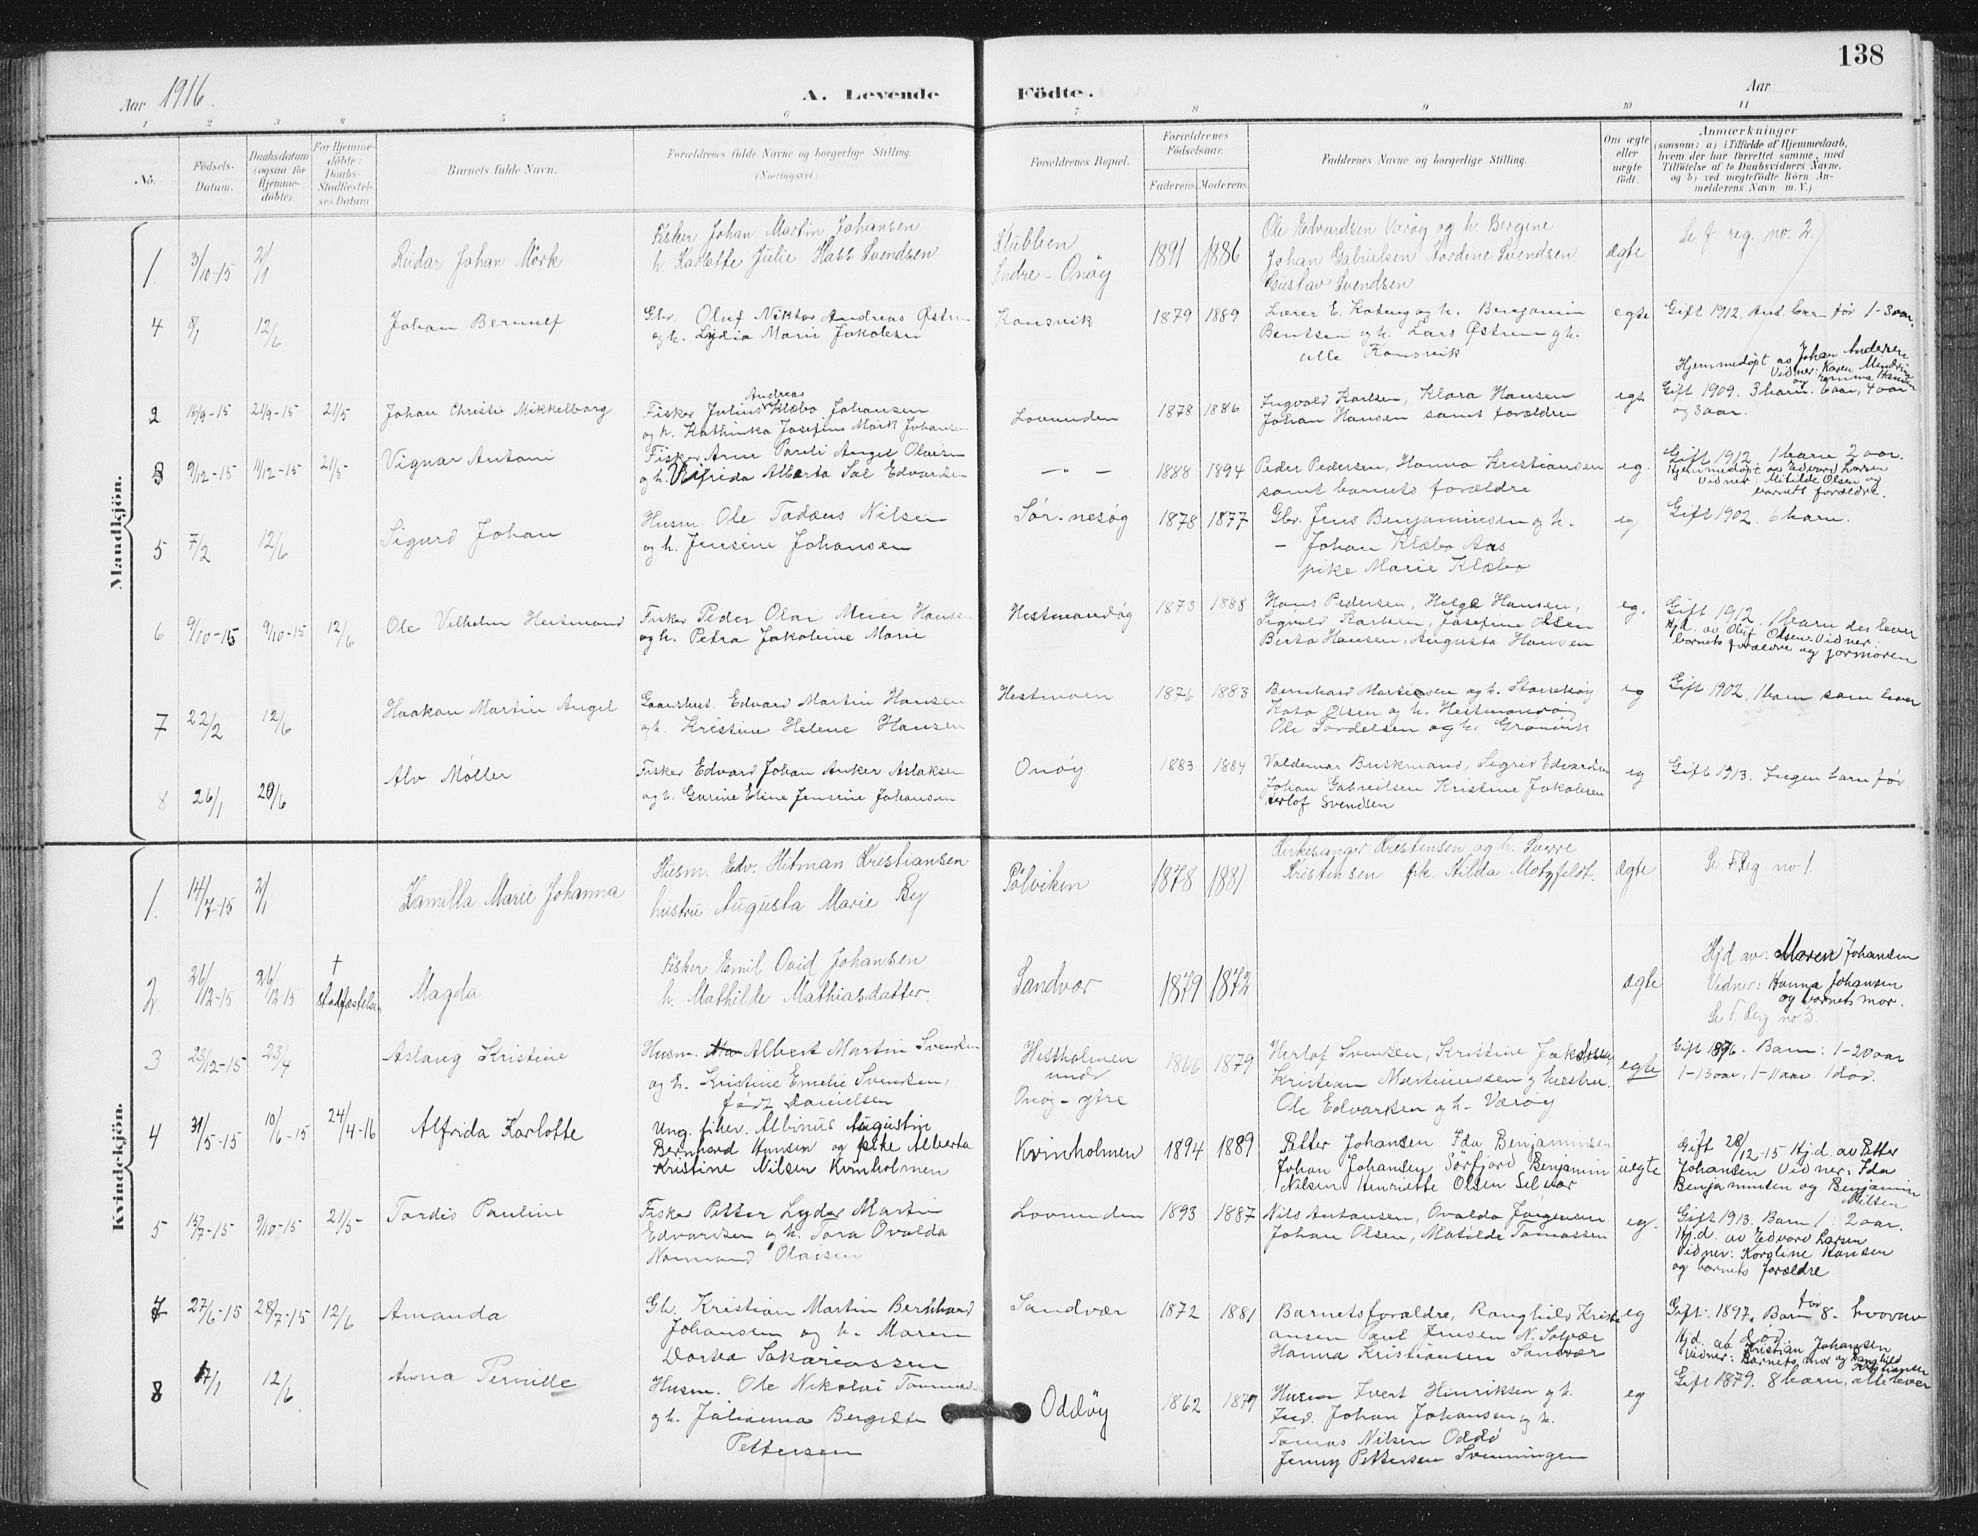 138
Aar 1916.
A. Levende Födte.
Aar
1 2 3 4 5 6 7 8 9 10 11
No.
Födsels-
Datum.
Daabsdatum
(ogsaa for
Hjemme-
döbte).
For Hjemme-
döbte:
Daabs-
Stadfæstel-
ses Datum
Barnets fulde Navn.
Forældrenes fulde Navne og borgerlige Stilling.
(Næringsvei)
Forældrenes Bopæl.
Forældrenes
Födselsaar.
Faderens. Moderens.
Faddernes Navne og borgerlige Stilling.
Om ægte
eller
uægte
födt.
Anmærkninger
(saasom: a) i Tilfælde af Hjemmedaab,
hvem der har forrettet samme, med
Tilföielse af to Daabsvidners Navne.
og b) ved uægtefödte Börn An-
melderens Navn m. V.)
Mandkjön.
1. 3/10-15 2/1 Reidar Johan Mörk
Fisker Johan Martin Johansen
h. Karlotte Julie Svendsen
Stubben
Indre-Onöy
1891 1886
Ole Edvardsen Værøy og h. Bergine
Johan Gabrielsen Nordine Svendsen
Gustav Svendsen
ægte
Se f reg. no. 2.
4 8/1 12/6 Johan Bernulf
Gbr. Oluf Viktor Andreas Østrem
og h. Lydia Marie Jakobsen
Konsvik 1879 1889
Lærer E. Koteng og h. Benjamin
Bentsen og h. Lars Østrem og h.
alle Konsvik
egte
Gift 1912. Ant. barn før 1-3 aar.
2 15/9-15 21/9-15 21/5 Johan Christie Mikkelborg
Andreas
Fisker Julius Klæbo Johansen
og h. Kathinka Josefine Mörk Johansen
Lovunden 1878 1886
Ingvald Karlsen, Klara Hansen
Johan Hansen samt forældren
egte
Hjemmedøpt av Johan Andersen
Vidner: Karen Mindrea
og Emma Hansen
Gift 1909. 3 barn. 6 aar, 4 aar
og 3 aar.
3 9/12-15 11/12-15 21/5 Vignar Antoni
Fisker Arne Pareli Angel Olaisen
og h. Alfrida Alberta Sal Edvardsen
—"— 1888 1894
Peder Pedersen, Hanna Kristiansen
samt barnets forældre
eg.
Gift 1912. 1 barn 2 aar.
Hjemmedøpt av Edvard Larsen
Vidner: Matilde Olsen og
barnets forældre.
5 7/2 12/6 Sigurd Johan
Husm. Ole Tadæus Nilsen
og h. Jensine Johansen
Sør-nesøg 1878 1877
Gbr. Jens Benjaminsen og h.
— Johan Klæbo Aas
pike Marie Klæbo
eg
Gift 1902. 6 barn.
6 9/10-15 9/10-15 12/6 Ole Vilhelm Hestmand
Fisker Peder Olai Meier Hansen
og h. Petra Jakobine Marie
Hestmandøg 1873 1888
Hans Pedersen, Helge Hansen,
Sigvald Karlsen, Josefine Olsen
Berta Hansen, Augusta Hansen
eg.
Gift 1912. 1 barn der lever
Hj.d. av Oluf Olsen. Vidner:
barnets forældre og jormoren
7 22/2 12/6 Haakon Martin Angel
Gaardbest. Edvard Martin Hansen
og h. Kristine Helene Hansen
Hestmoen 1876 1883
Bernhard Martinsen og h. Storselsöy
Kato Olsen og h. Hestmandöy
Ole Tordelsen og h. Grönvik
eg
Gift 1902. 1 barn som lever
8 26/1 20/6 Alv Møller
Fisker Edvard Johan Anker Aslaksen
og h. Gurine Eline Jensine Johansen
Onøy 1883 1884
Valdemar Buskmand, Sigrid Edvardsen
Johan Gabrielsen Kristine Jakobsen
Herlof Svendsen
eg
Gift 1913. Ingen barn før
Kvindekjön.
1. 14/7-15 2/1 Kamilla Marie Johanna
Husm. Edv. Hitman Kristiansen
hustru Augusta Marie By
Pölviken 1878 1881
Kirkesanger Kristensen og h. Sverre
Kristensen frk. Hilda Motzfeldt.
Ægte
Se F. Reg. no 1.
2. 26/12-15 26/12-15 † stadfæstelse Magda
Fisker Emil Ovid Johansen
h. Mathilde Mathiasdatter.
Sandvær 1879 1872
ægte
Hjd av: Maren Johansen
Vidner: Hanna Johansen
og barnets mor.
Se F. Reg no 3.
3 23/12-15 23/4 Aslaug Kristine
Husm. Albert Martin Svensen
og h. Kristine Emelie Svensen,
født Danielsen
Hestholmen
undr
Onøy-ytre
1866 1879
Herlof Svensen, Kristine Jakobsen
Kristian Martinussen og hustru.
Ole Edvarsen og h. Værøy
egte
Gift 1896. Barn: 1-20 aar
1-13 aar, 1-11 aar. 1 død.
4 31/5-15 10/6-15 24/4-16 Alfrida Karlotte
Ung. fiker. Albinus Augustin
Bernhard Hansen og pike Alberta
Kristine Nilsen Kvinholmen
Kvinholmen 1894 1889
Petter Johansen Ida Benjaminsen
Johan Johansen Sörfjord Benjamin
Nilsen Henriette Olsen Selvær
uegte
Gift 28/12-15 Hj.d. av Petter
Johansen Vidner: Ida
Benjaminsen og Benjamin
Nilsen
5 15/7-15 9/10-15 21/5 Tordis Pauline
Fisker Petter Lyder Martin
Edvardsen og h. Tora Ovalda
Normand Olaisen
Lovunden 1893 1887
Nils Antonsen, Ovalda Jørgensen
Johan Olsen, Matilde Tomassen
eg.
Gift 1913. Barn 1: 2 aar.
Hj.d. av Edvard Larsen
Vidner: Karoline Hansen
og barnets forældre
7 27/6-15 28/7-15 12/6 Amanda
Gb. Kristian Martin Bernhard
Johansen og h. Maren
Dorka Sakariassen
Sandvær 1872 1881
Barnets forældre, Ranghild Kristi-
ansen Paul Jensen N. Solvær
Hanna Kristiansen Sandvær
eg
Gift: 1897. Barn før 8. hvorav
1 død
Hjd. av Kristian Johansen
Vidner: Barnets mor og Ranghild
Kristiansen
8 17/1 12/6. Anna Pernille
Husm. Ole Nikolai Tommas
og h. Julianna Bergitte
Pettersen
Oddöy 1862 1879
Husm Ivert Hinriksen og h.
Ind. Johan Johansen og h.
Tomas Nilsen Oddö
Jenny Pettersen Svenningen
eg
Gift 1879. 8 barn, alle lever